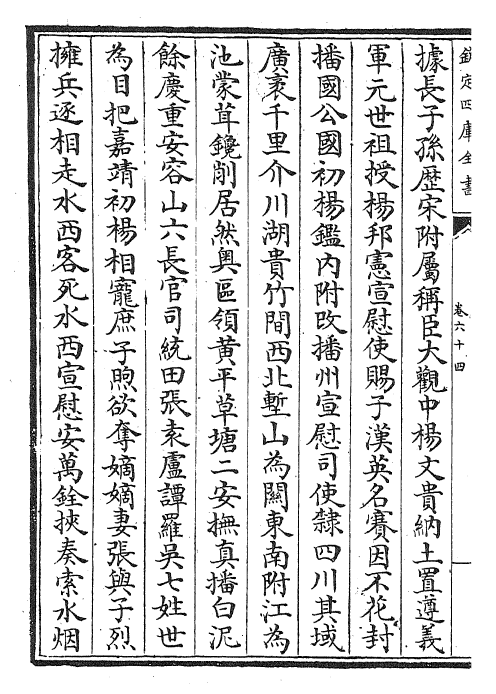 欽定四庫全書
卷六十四
據長子孫歴宋附屬稱臣大觀中楊文貴納土置遵義
軍元世祖授楊邦憲宣慰使賜子漢英名賽因不花封
播國公國初楊鑑内附改播州宣慰司使隸四川其域
廣袤千里介川湖貴竹間西北塹山為關東南附江為
池蒙茸鑱削居然奥區領黄平草塘二安撫真播白泥
餘慶重安容山六長官司統田張袁盧譚羅吳七姓世
為目把嘉靖初楊相寵庶子煦欲奪嫡嫡妻張與子烈
擁兵逐相走水西客死水西宣慰安萬銓挾奏索水烟